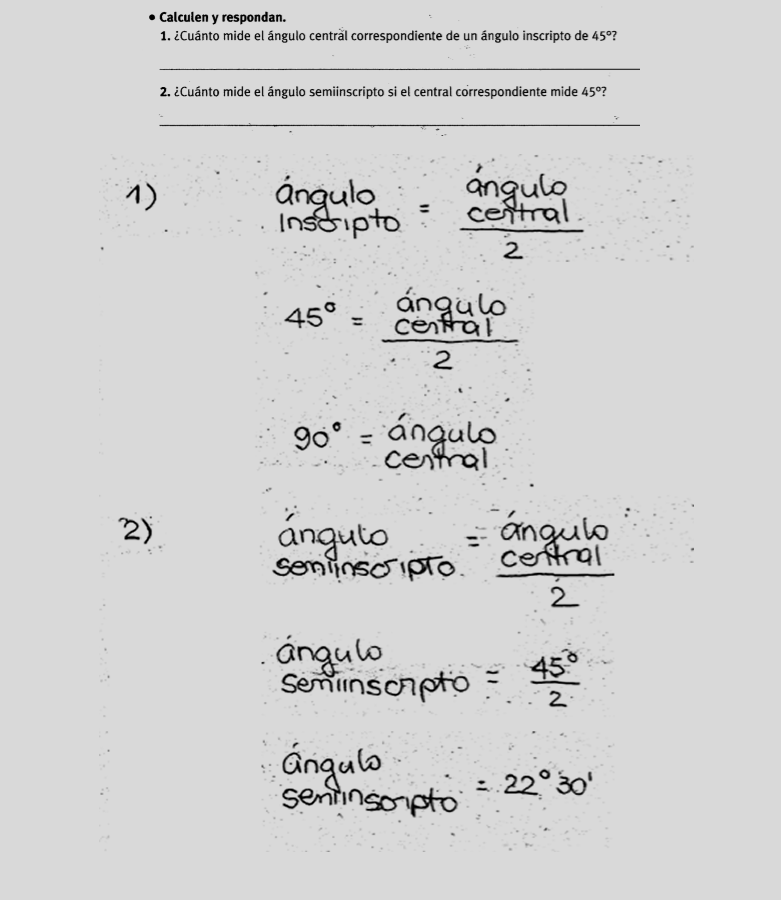 • Calculen y respondan.
1. ¿Cuánto mide el ángulo central correspondiente de un ángulo inscripto de 45°?
2. ¿Cuánto mide el ángulo semiinscripto si el central correspondiente mide 45°?
1) ángulo inscripto = ángulo central / 2
45° = ángulo central / 2
90° = ángulo central
2) ángulo semiinscripto = ángulo central / 2
ángulo semiinscripto = 45° / 2
ángulo semiinscripto = 22° 30'